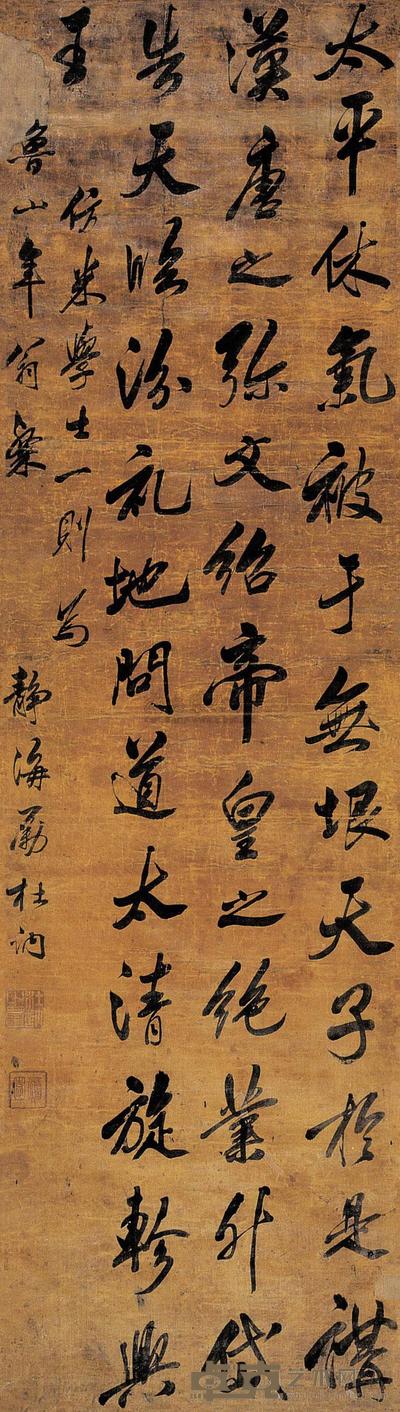 太平休氣被于無垠天子於是講
漢唐之弥文紹帝皇之絶業升岱
告天臨汾礼地問道太清旋軫興
王
仿米學士一則為
魯山年翁粲
静海勵杜訥